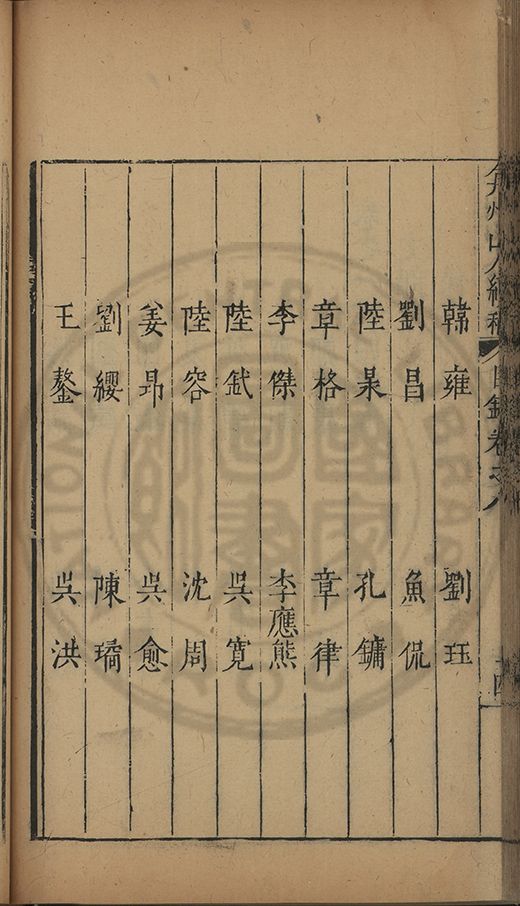 弇州山人續稿 目錄卷之八 十四
韓雍 劉珏
劉昌 魚侃
陸杲 孔鏞
章格 章律
李傑 李應熊
陸釴 吳寬
陸容 沈周
姜昂 吳愈
劉纓 陳璚
王鏊 吳洪